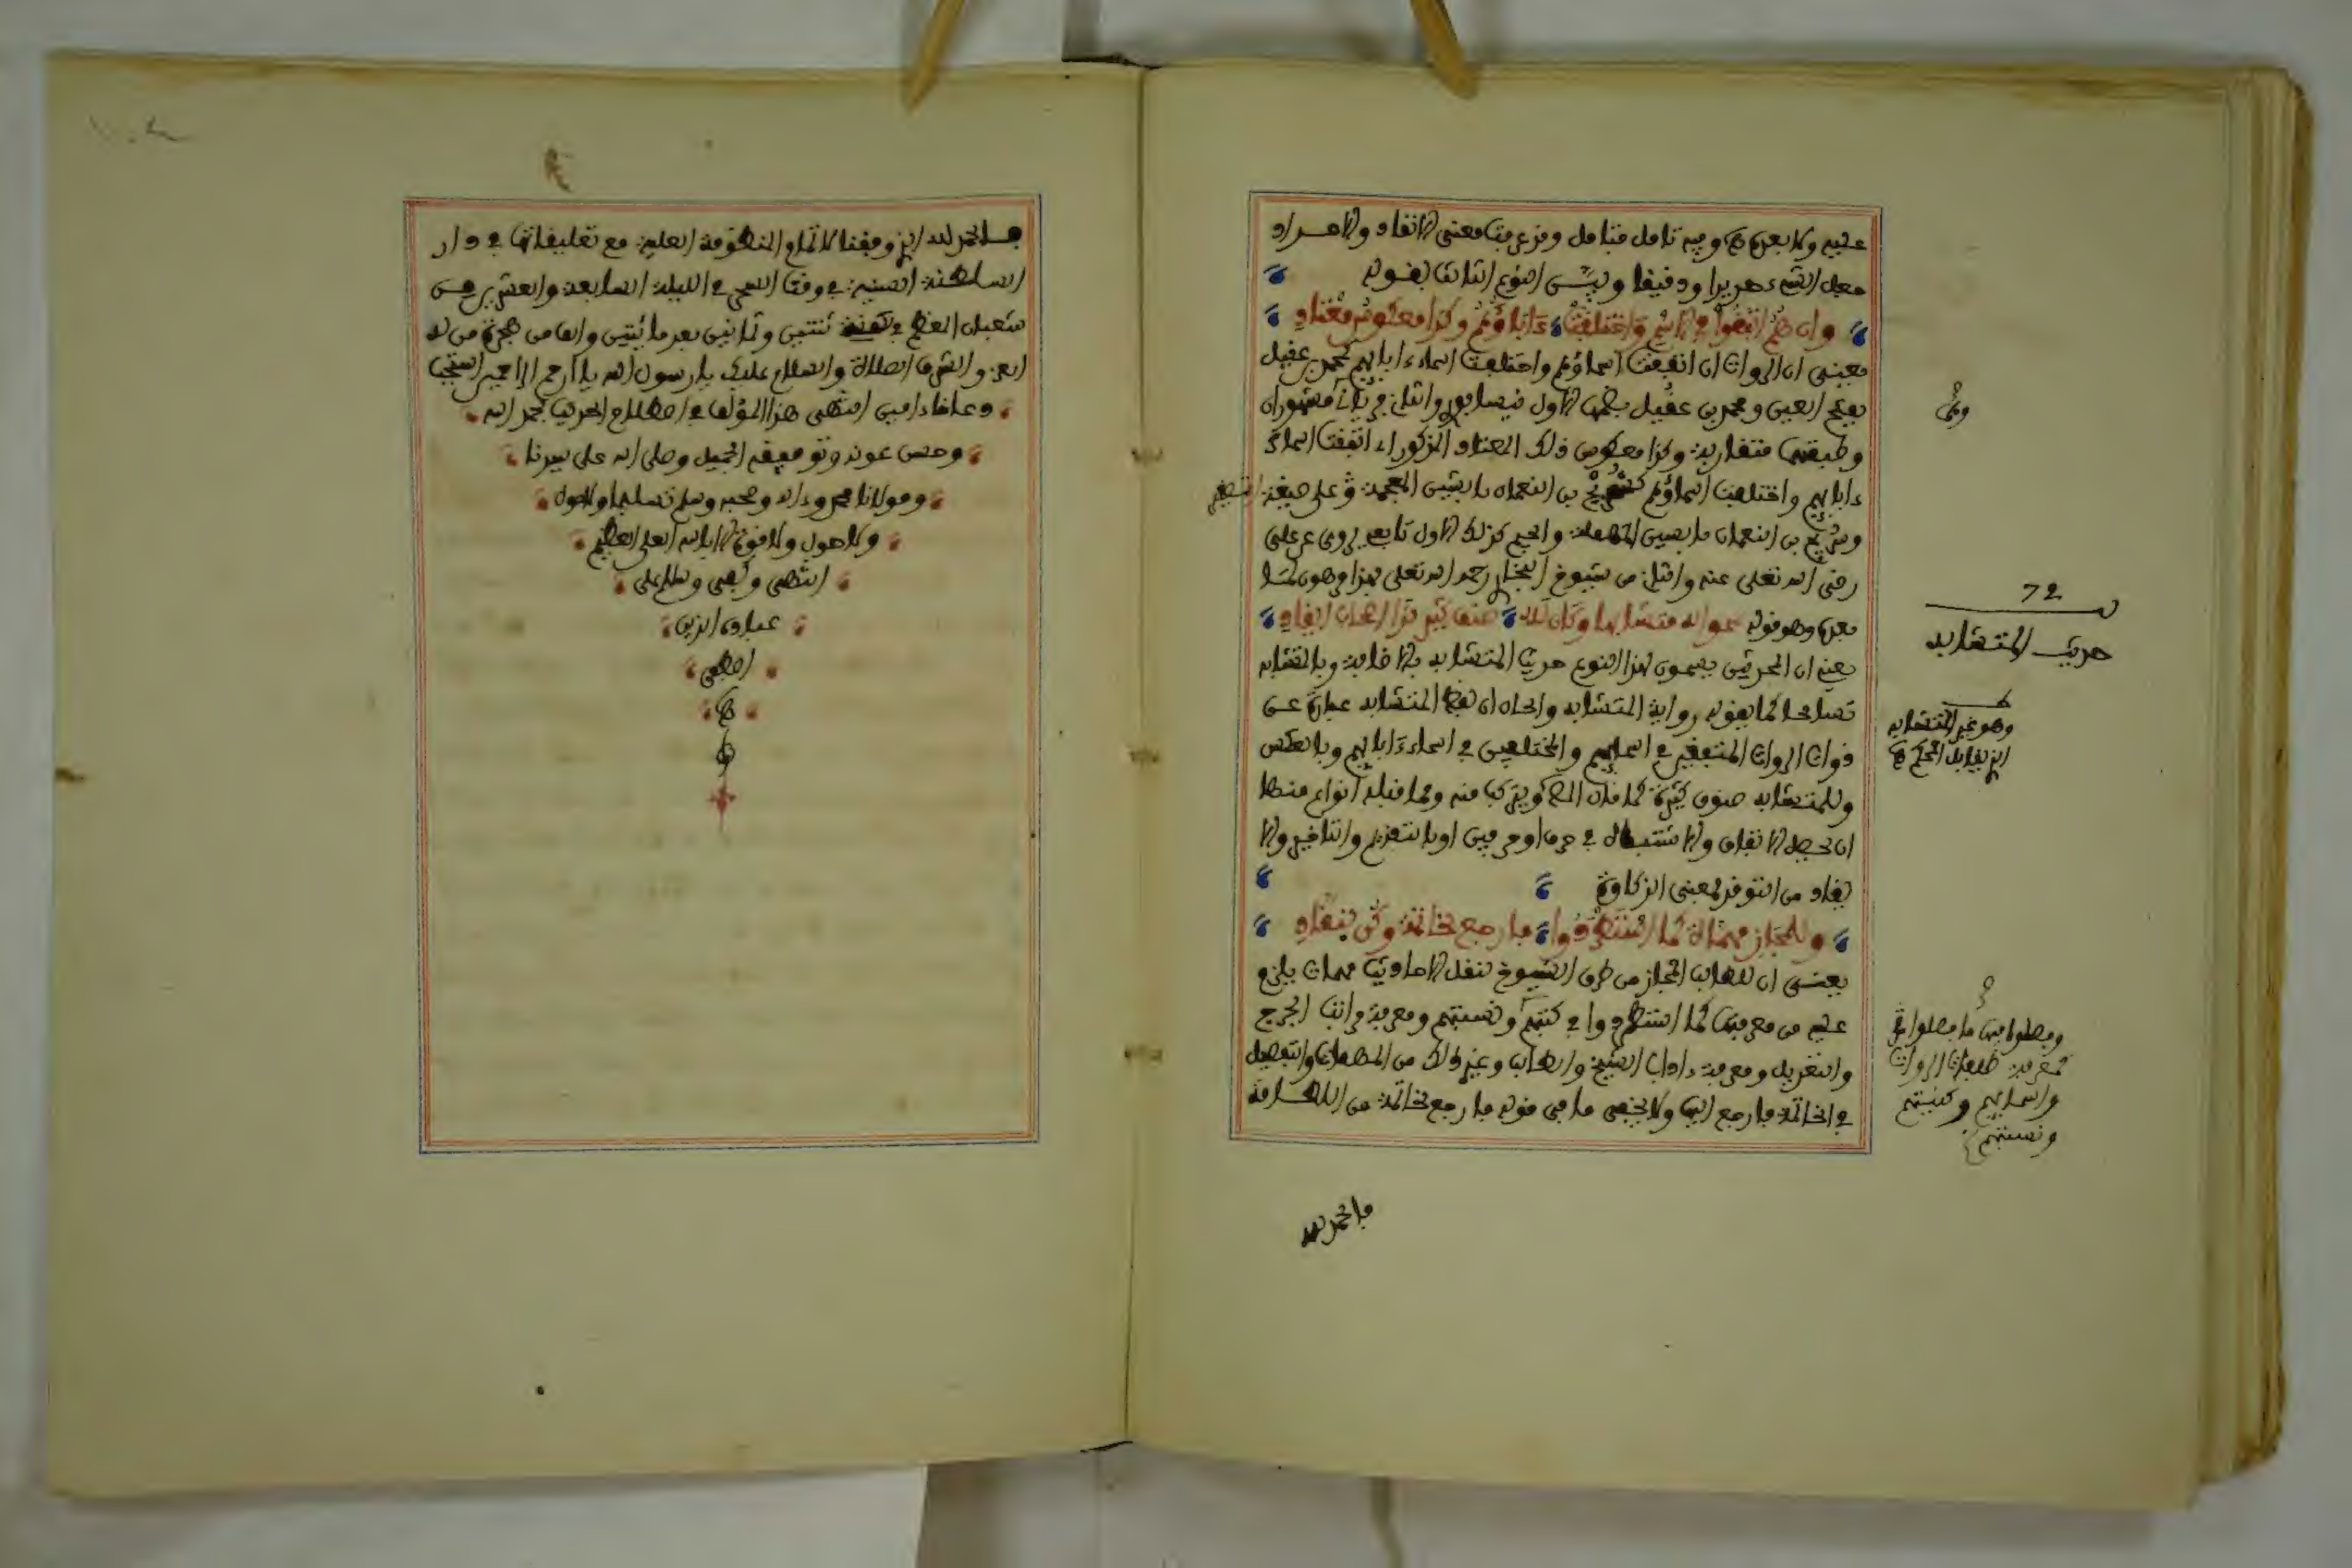 عليه ولا بعد وفيه تامل فتامل وقد عرفت معنى الانتقاد والمراد
فعل الشيء حريرا ودقيقا وبين النوع الثالث بقوله
وان هم اتفقوا في الاسم واختلفت ءاباؤهم وكذا معكوس معتاد
يعني ان الرواة ان اتفقت اسماؤهم واختلفت اسماء ابايهم كمحمد بن عقيل
بفتح العين ومحمد بن عقيل بضمها الاول نيسابوري والثاني فريابي مشهوران
وطبقتهما متقاربة وكذا معكوس ذلك المعتاد المذكور اي اتفقت اسماء
ءابايهم واختلفت اسماؤهم كشريح بن النعمان بالشين المعجمة على صيغة التصغير
وسريج بن النعمان بالسين المهملة والجيم كذلك الاول تابعي يروي عن علي
رضي الله تعلى عنه والثاني من شيوخ البخاري رحمه الله تعلى
بعده وهو قوله
يعني ان المحدثين يسمون هذا النوع حديث المتشابه بالاضافة وبالمتشابه
تسامحا كما يقولون رواية المتشابه والحال ان لفظ المتشابه عبارة عن
ذوات الرواة المتفقين في اسمايهم والمختلفين في اسماء ءابايهم وبالعكس
وللمتشابه صنوف كثيرة كما قال ويتركب منه ومما قبله انواع منها
ان يحصل الاتفاق والاشتباه في حرف او حرفين او بالتقديم والتاخير
يفاد من التوقد لمعنى الذكاوة
وللمجاز مهمات كما استطردوا فارجع لخاتمة وكن بنقاد
يعني ان للطالب المجاز من طرف الشيوخ لنقل الاحاديث مهمات يلزم
عليه من معرفتها كما استطردوا في كنيتهم ونسبتهم ومعرفة مراتب الجرح
والتعديل ومعرفة ءاداب الشيخ والطالب وغير ذلك من المهمات والتفصيل
في الخاتمة فارجع اليها ولا يخفى ما في قوله فارجع لخاتمة من اللطافة
72
حديث المتشابه
وهو غير المتشابه
الذي يقابل المحكم
كمعرفة طبقات الرواة
واسمايهم وكنيتهم
ونسبتهم
فالحمد لله
فالحمد لله الذي وفقنا لاتمام المنظومة العلية مع تعليقاتها في دار
السلطنة السنية في وقت السحر في الليلة السابعة والعشرين من
شعبان المعظم في سنة ثنتين وثمانين بعد مائتين والف من هجرة من له
العز والشرف الصلاة والسلام عليك يا رسول الله يا ارحم الراحمين استجب
دعاءنا ءامين انتهى هذا المؤلف في اصطلاح الحديث بحمد الله
وحسن عونه وتوفيقه الجميل وصلى الله على سيدنا
ومولانا محمد وءاله وصحبه وسلم تسليما ولا حول
ولا حول ولا قوة الا بالله العلي العظيم
انتهى وكفى وسلام على
عباده الذين
اصطفى